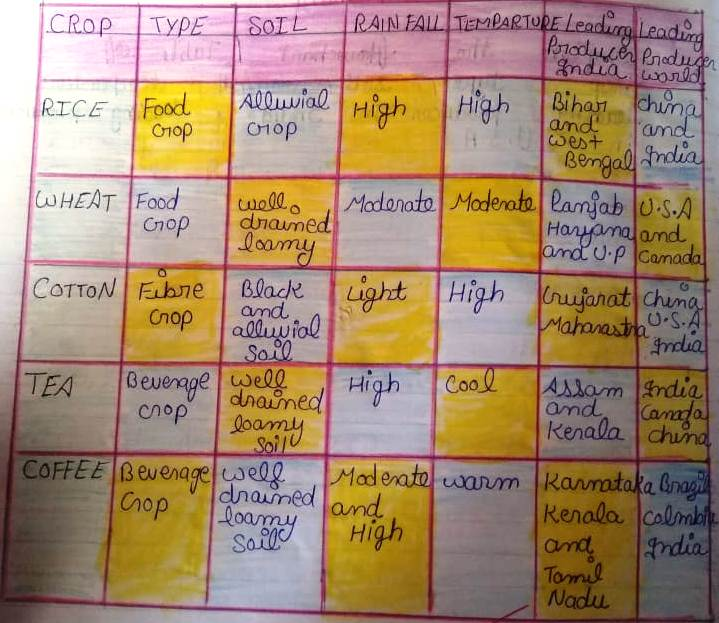 CROP TYPE SOIL RAINFALL TEMPARTURE Leading Producer India Leading Producer world
RICE Food crop Alluvial crop High High Bihar and west Bengal china and India
WHEAT Food crop well drained loamy Moderate Moderate Panjab Haryana and U.P U.S.A and Canada
COTTON Fibre crop Black and alluvial soil Light High Gujarat Maharastra China U.S.A India
TEA Beverage crop well drained loamy soil High Cool Assam and Kerala India Canada china
COFFEE Beverage Crop well drained loamy soil Moderate and High warm Karnataka Kerala and Tamil Nadu Brazil Colmbia India